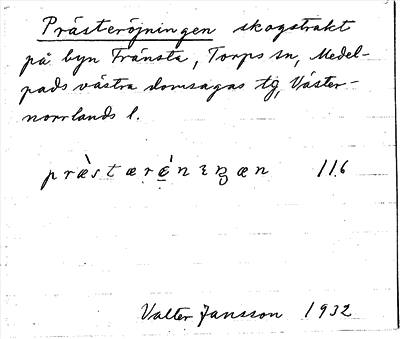 Prästeröjningen skogstrakt
på byn Fränsta, Torps sn, Medel-
pads västra domsagas tg, Väster-
norrlands l.
præ̀stærénɪŋæn 116
Valter Jansson 1932